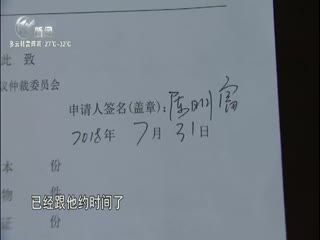 多云转雷阵雨 27℃-32℃
此 致
议仲裁委员会
申请人签名(盖章):陈明富
2018年 7月 31日
本 份
物 件
证 份
已经跟他约时间了